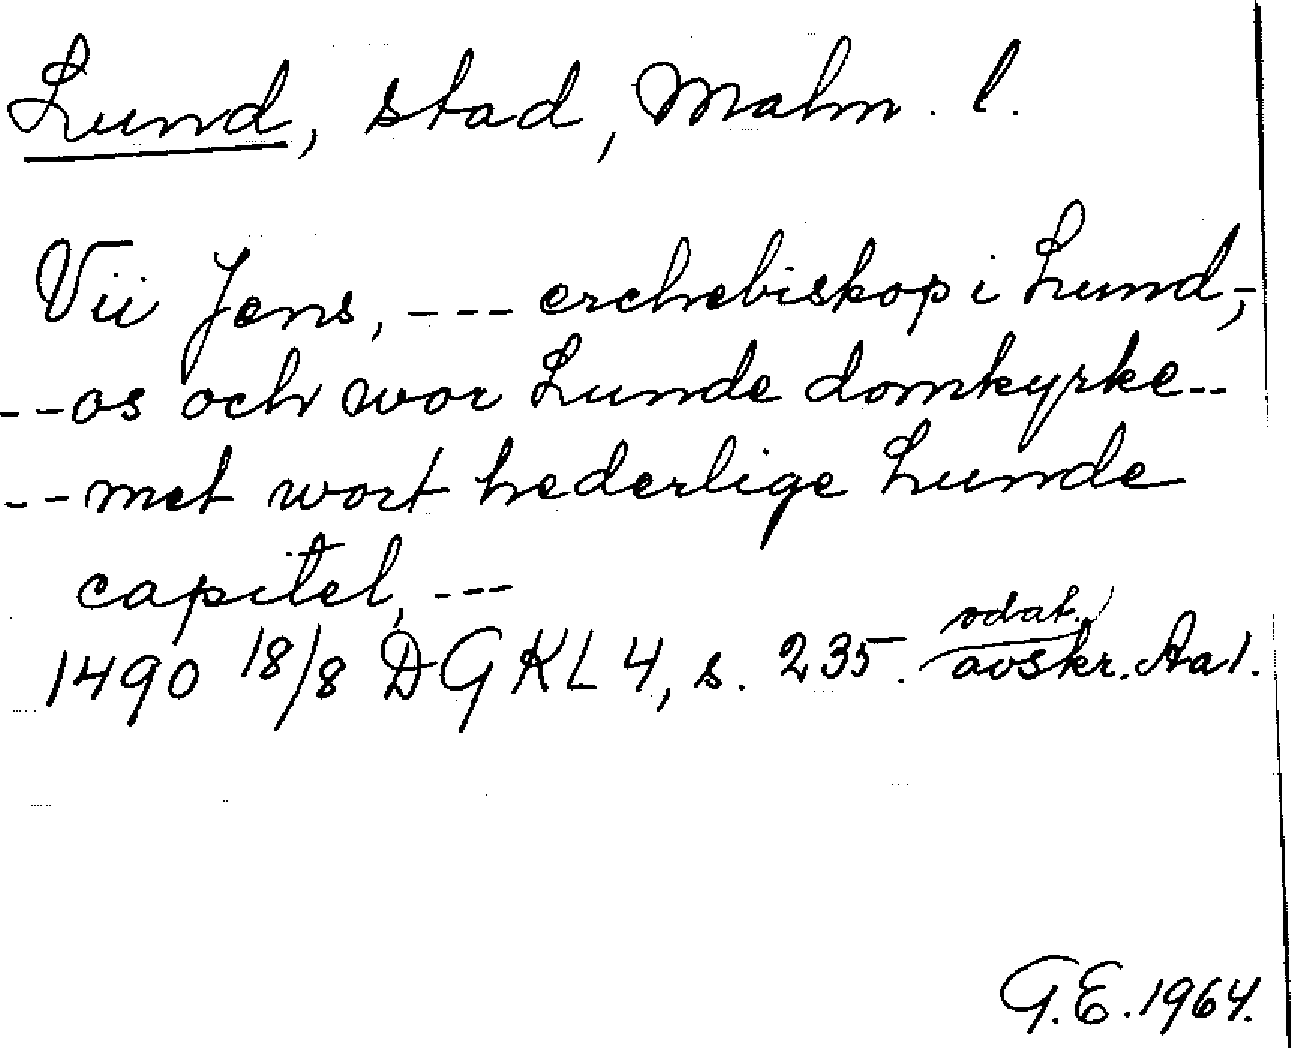 Lund, stad, Malm. l.
Vii Jens, --- erchebiskop i Lund,-
--os och wor Lunde domkyrke--
--met wort hederlige Lunde
capitel, ---
1490 18/8 DGKL 4, s. 235. odat. avskr. Aa 1.
G.E. 1964.